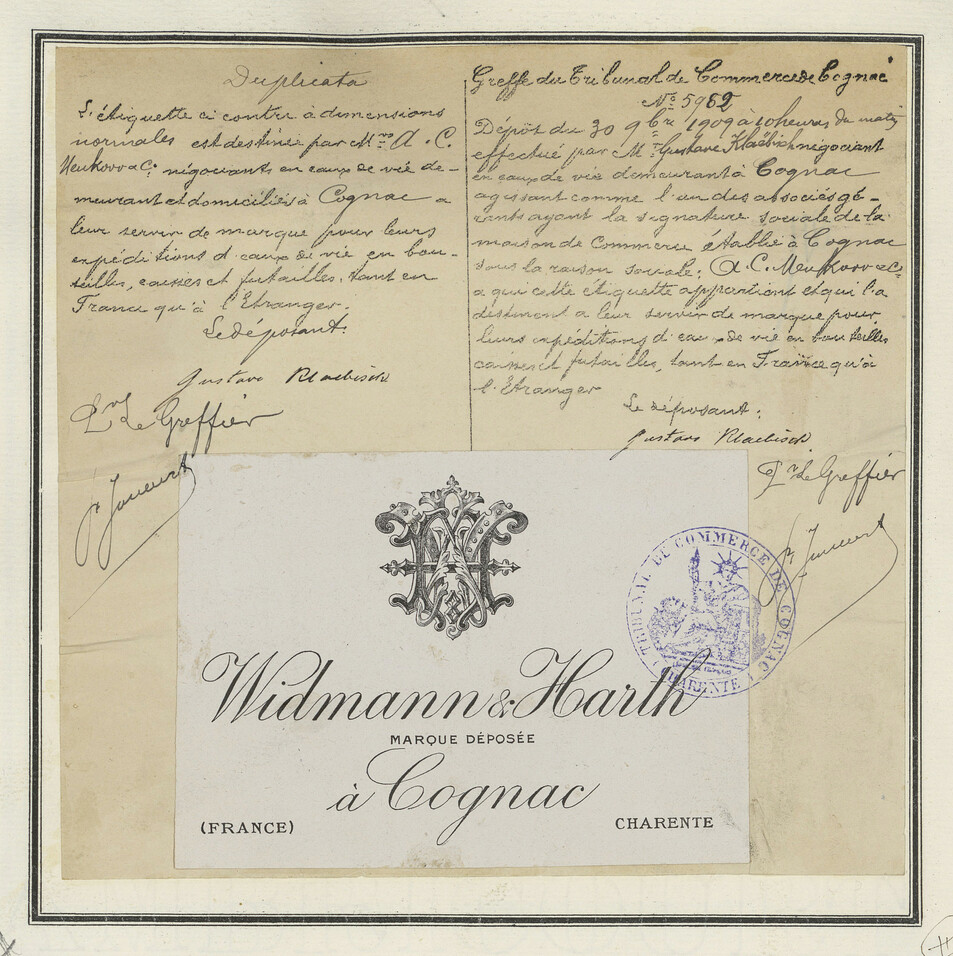 Duplicata
L'étiquette ci contre à dimensions
normales est destinée par Mrs A. C.
Meukow & Cie négociants en eaux de vie de-
meurant et domiciliés à Cognac a
leur servir de marque pour leurs
expéditions d'eaux de vie en bou-
teilles, caisses et futailles, tant en
France qu'à l'Etranger.
Le déposant:
Gustave Klaebisch
Pr le Greffier
Greffe du Tribunal de Commerce de Cognac
No 5962
Dépôt du 30 9bre 1909 à 10 heures du matin
effectué par Mr Gustave Klaëbisch négociant
en eaux de vie demeurant à Cognac
agissant comme l'un des associés gé-
rants ayant la signature sociale de la
maison de Commerce établie à Cognac
sous la raison sociale: A. C. Meukow & Cie
a qui cette étiquette appartient et qui l'a
destinent a leur servir de marque pour
leurs expéditions d'eaux de vie en bouteilles
caisses et futailles, tant en France qu'à
l'Etranger
Le déposant:
Gustave Klaebisch
Pr le Greffier
TRIBUNAL DE COMMERCE DE COGNAC
(CHARENTE)
Widmann & Harth
MARQUE DÉPOSÉE
à Cognac
(FRANCE) CHARENTE